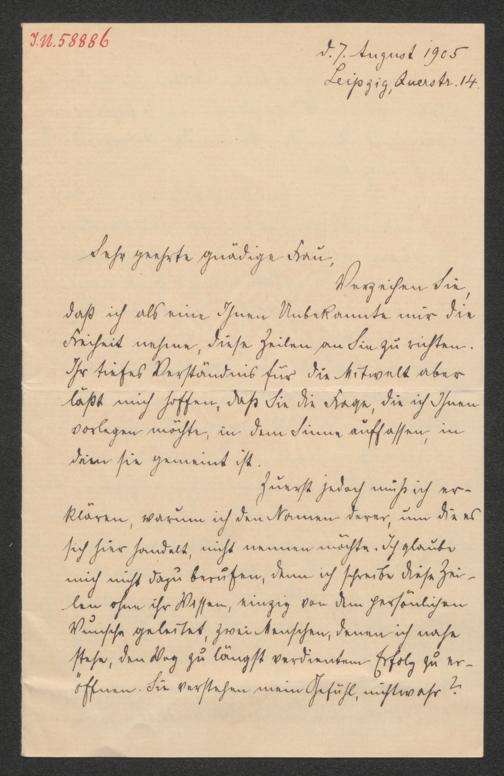 J.N. 58886
d. 7. August 1905
Leipzig, Querstr. 14.
Sehr geehrte gnädige Frau,
Verzeihen Sie,
daß ich als eine Ihnen Unbekannte mir die
Freiheit nehme, diese Zeilen an Sie zu richten.
Ihr tiefes Verständnis für die Mitwelt aber
läßt mich hoffen, daß Sie die Frage, die ich Ihnen
vorlegen möchte, in dem Sinne auffassen, in
dem sie gemeint ist.
Zuerst jedoch muß ich er-
klären, warum ich den Namen derer, um die es
sich hier handelt, nicht nennen möchte. Ich glaube
mich nicht dazu berufen, denn ich schreibe diese Zei-
len ohne ihr Wissen, einzig von dem persönlichen
Wunsche geleitet, zwei Menschen, denen ich nahe
stehe, den Weg zu längst verdientem Erfolg zu er-
öffnen. Sie verstehen mein Gefühl, nicht wahr?